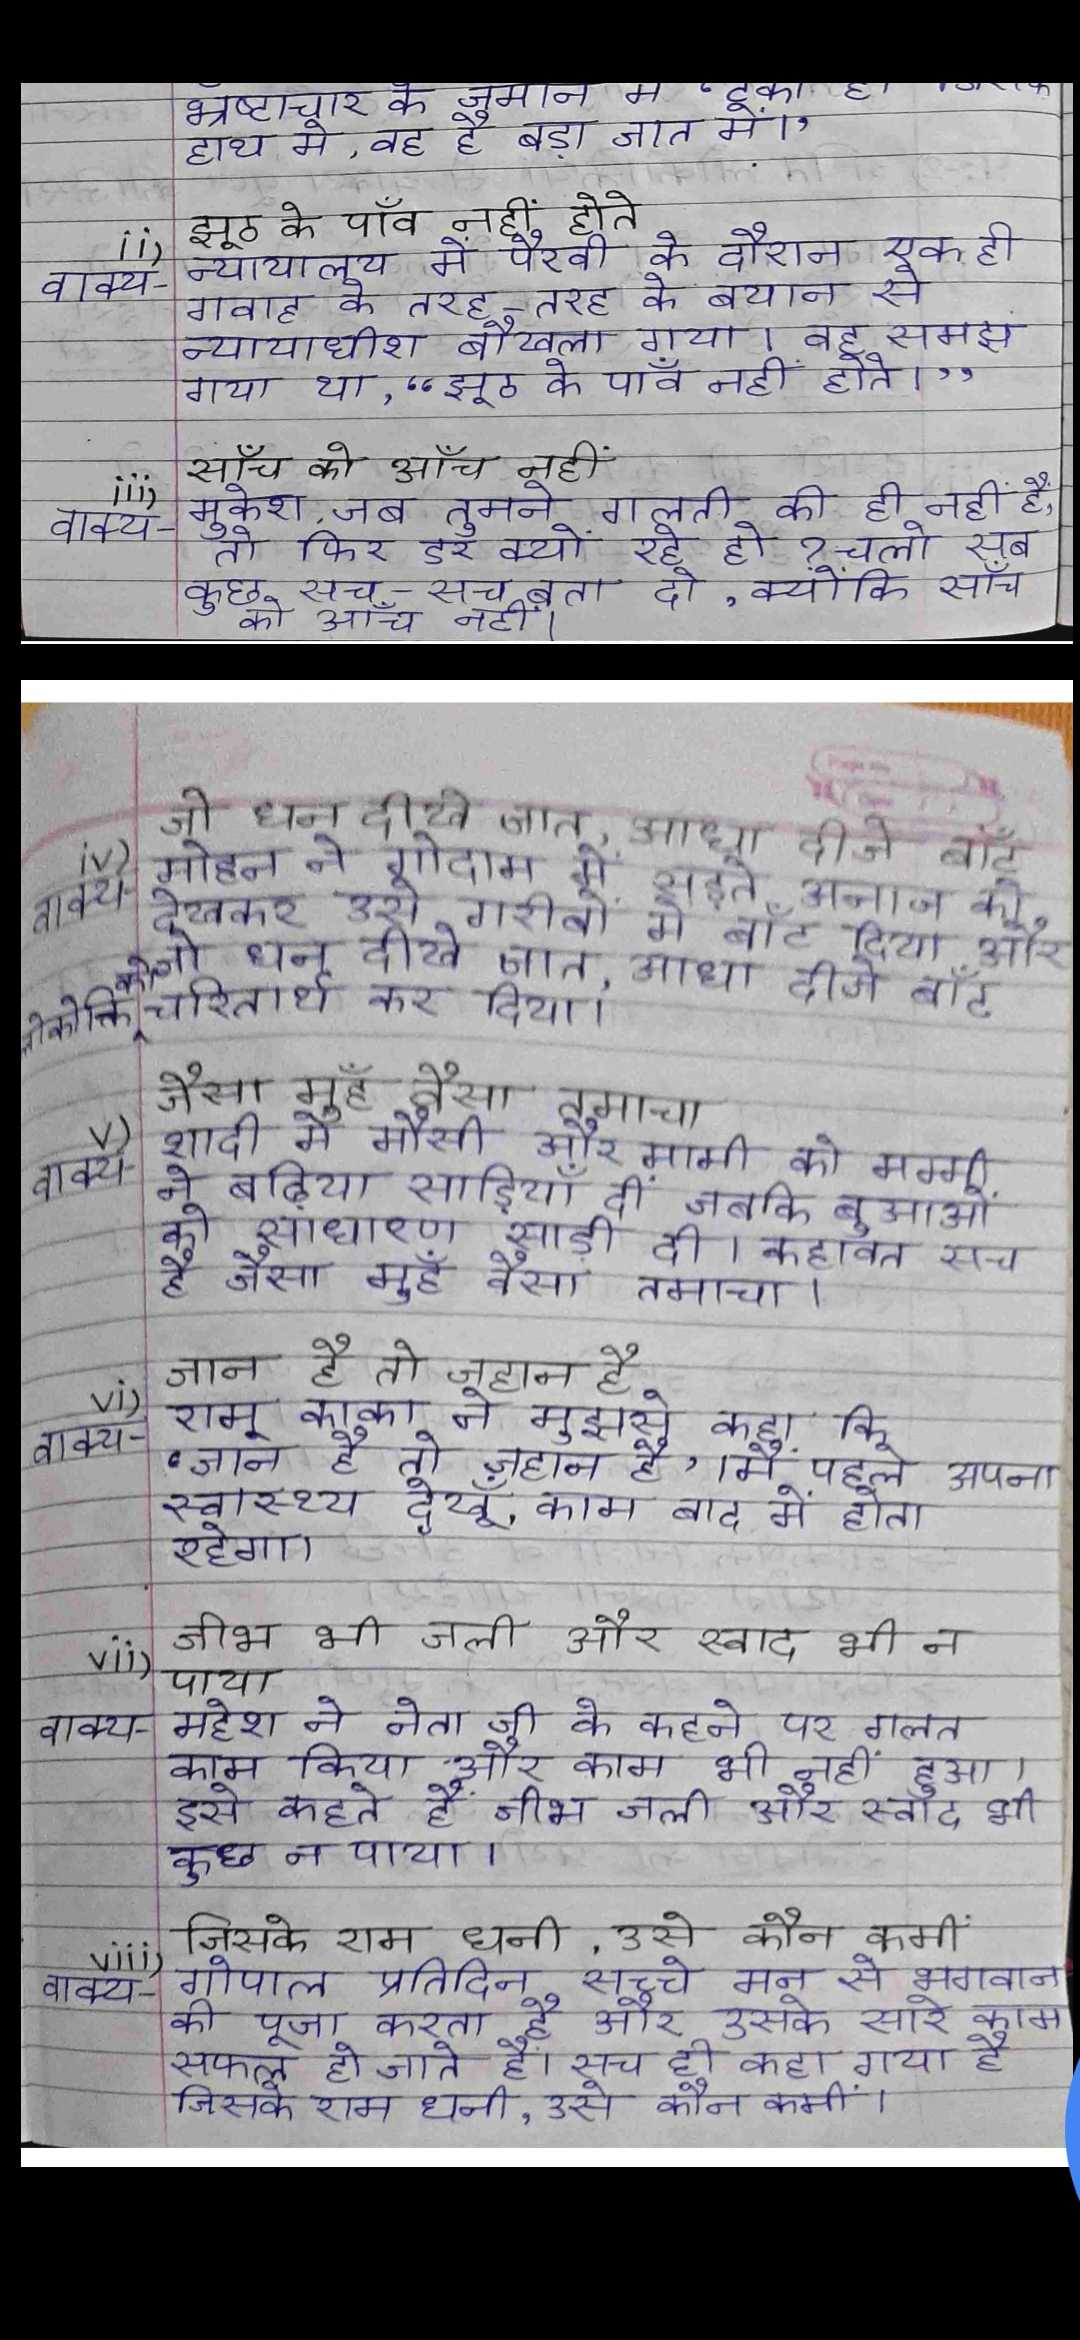 भ्रष्टाचार के जमाने में 'टका हो जिसके
हाथ में, वह है बड़ा जात में।'
ii) झूठ के पाँव नहीं होते
वाक्य- न्यायालय में पैरवी के दौरान एक ही
गवाह के तरह-तरह के बयान से
न्यायाधीश बौखला गया। वह समझ
गया था, “झूठ के पाँव नहीं होते।”
iii) साँच को आँच नहीं
वाक्य- मुकेश, जब तुमने गलती की ही नहीं हैं,
तो फिर डर क्यों रहे हो ? चलो सब
कुछ सच-सच बता दो, क्योंकि साँच
को आँच नहीं।
iv) जो धन दीखे जात, आधा दीजे बाँट
वाक्य- मोहन ने गोदाम में सड़ते अनाज को
देखकर उसे गरीबों में बाँट दिया और
जो धन दीखे जात, आधा दीजे बाँट
को लोकोक्ति चरितार्थ कर दिया।
v) जैसा मुहँ वैसा तमाचा
वाक्य- शादी में मौसी और मामी को मम्मी
ने बढ़िया साड़ियाँ दीं जबकि बुआओं
को साधारण साड़ी दी। कहावत सच
है जैसा मुहँ वैसा तमाचा।
vi) जान है तो जहान है
वाक्य- रामू काका ने मुझसे कहा कि
'जान है तो ज़हान है'। मैं पहले अपना
स्वास्थ्य देखूँ, काम बाद में होता
रहेगा।
vii) जीभ भी जली और स्वाद भी न
पाया
वाक्य- महेश ने नेता जी के कहने पर गलत
काम किया और काम भी नहीं हुआ।
इसे कहते हैं जीभ जली और स्वाद भी
कुछ न पाया।
viii) जिसके राम धनी, उसे कौन कमीं
वाक्य- गोपाल प्रतिदिन सच्चे मन से भगवान
की पूजा करता है और उसके सारे काम
सफल हो जाते हैं। सच ही कहा गया है
जिसके राम धनी, उसे कौन कमीं।